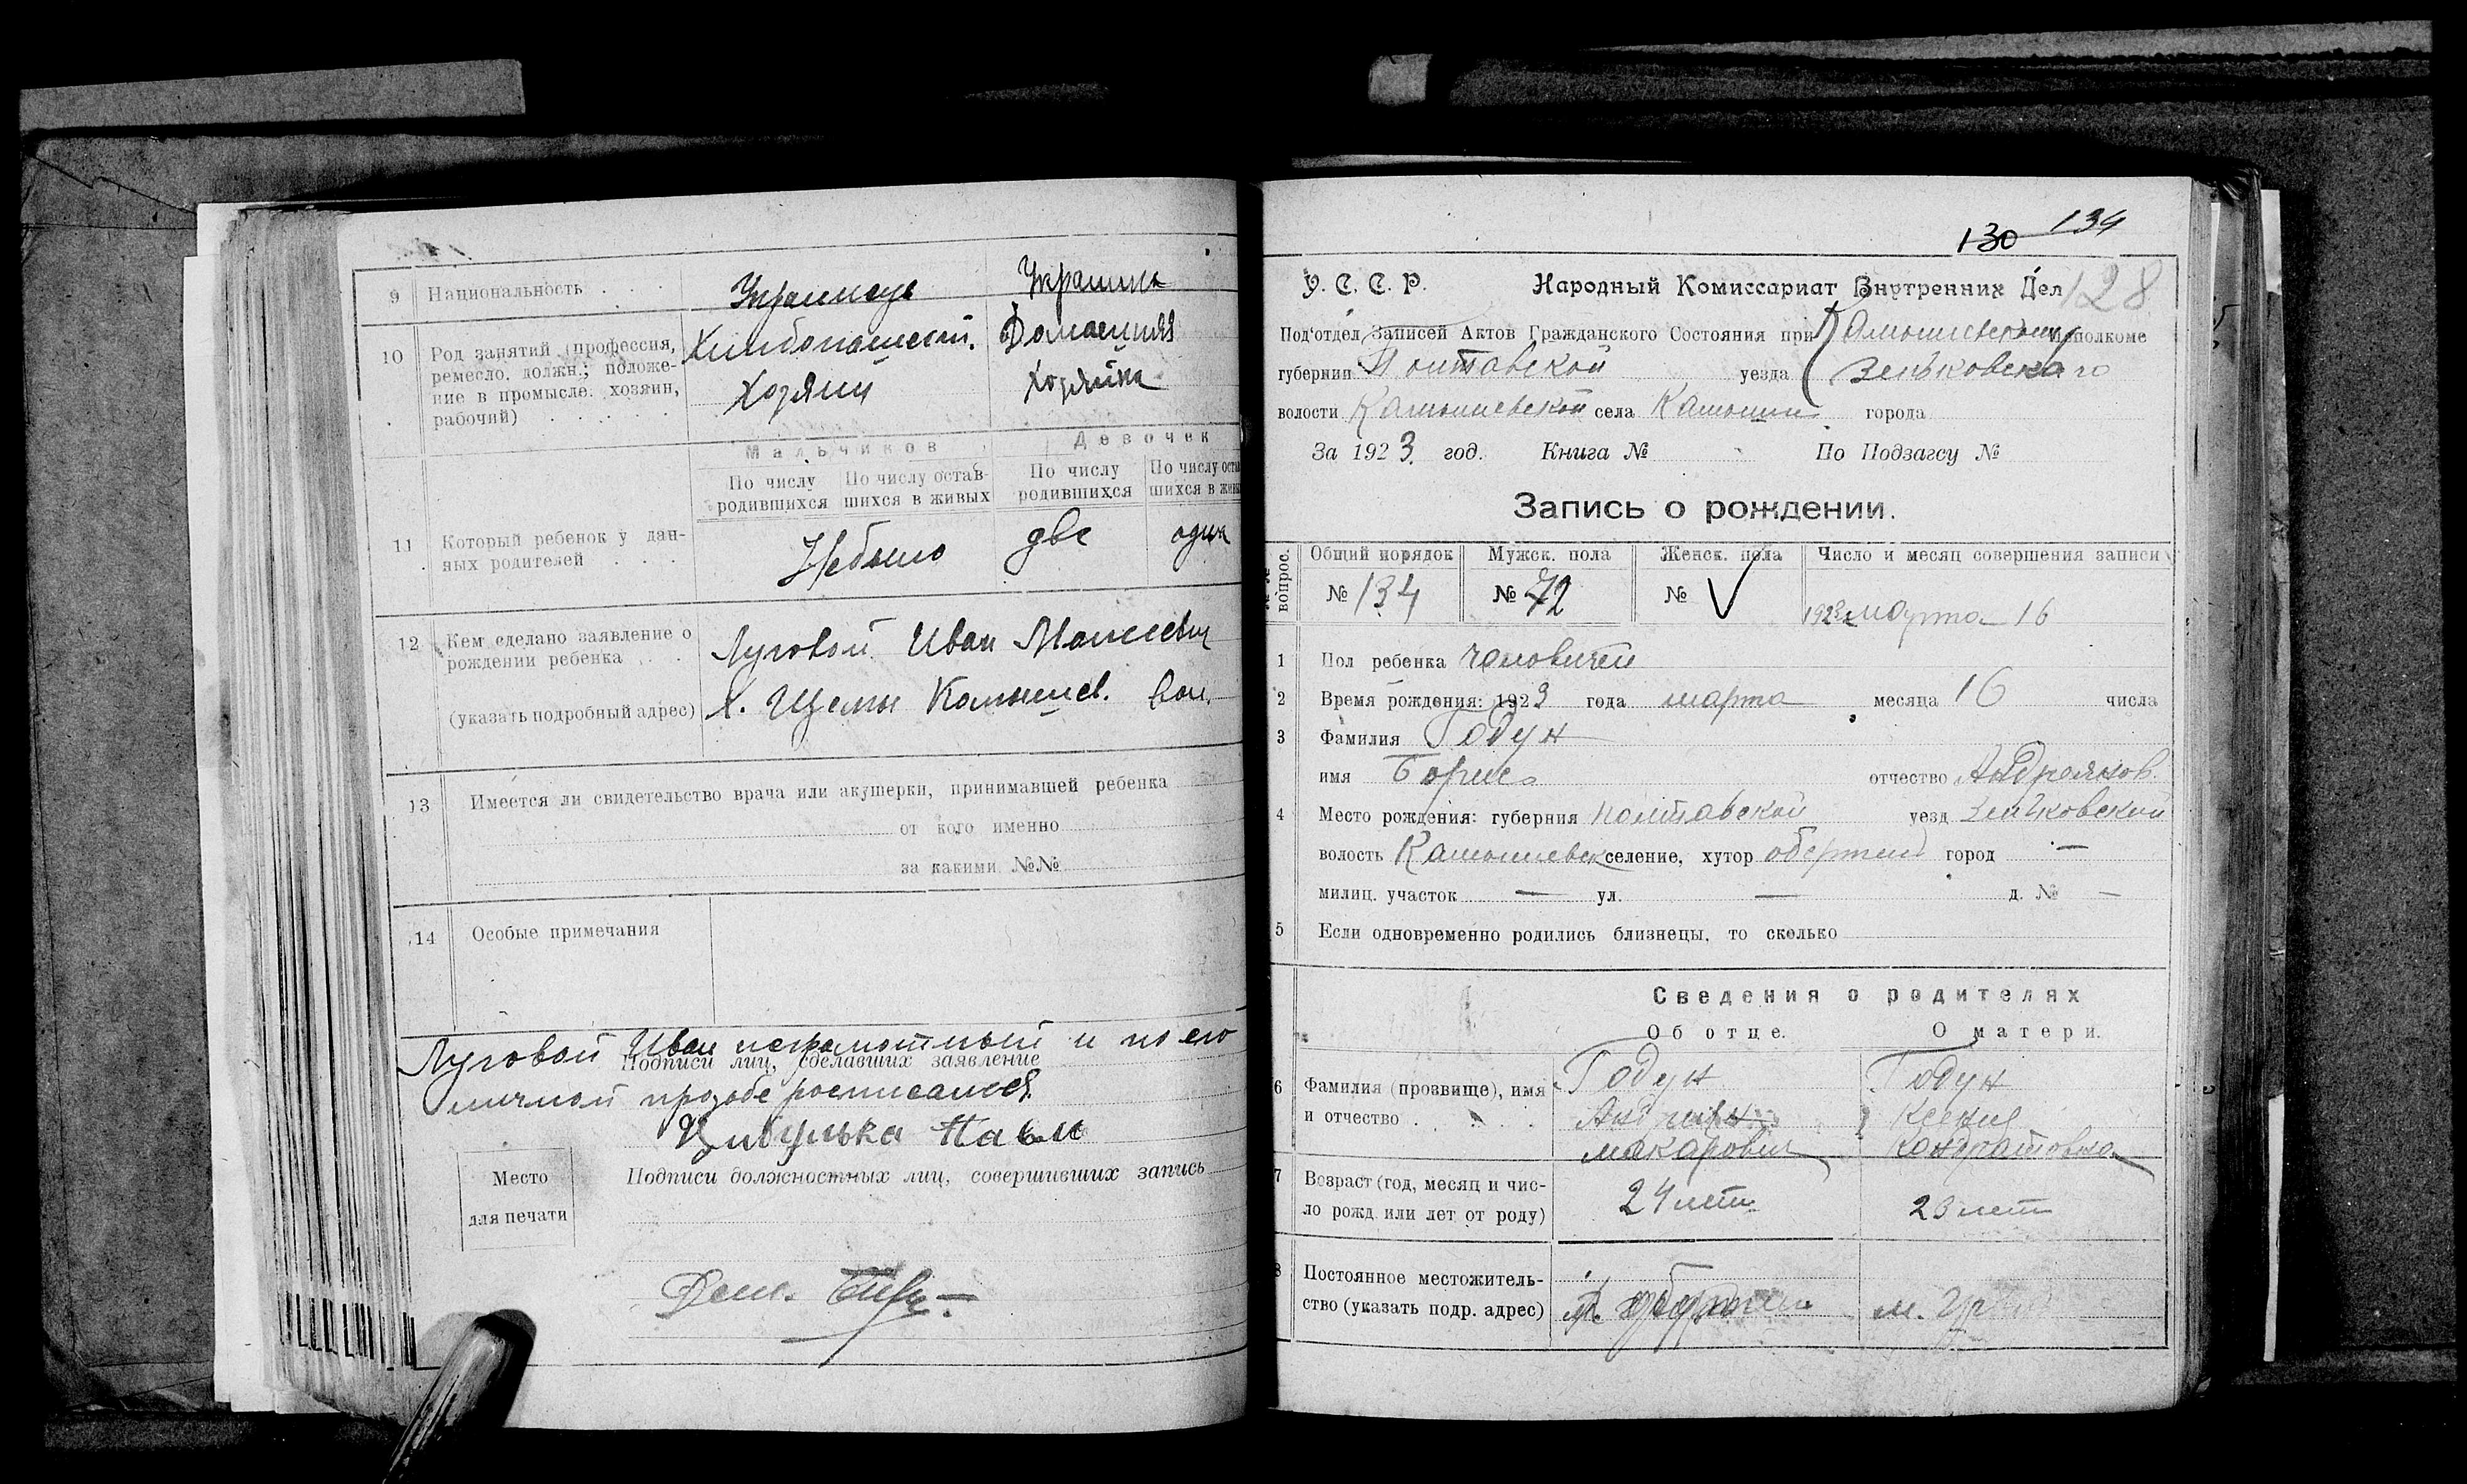 9 Национальность Украинець Украинка
10 Род занятий (профессия, ремесло, должн.; положение в промысле: хозяин, рабочий) Домашняя
Хозяин Хозяйка
Мальчиков Девочек
По числу родившихся По числу оставшихся в живых По числу родившихся По числу оста
шихся в жив
11 Который ребенок у данных родителей Небыло две одна
12 Кем сделано заявление о рождении ребенка Луговой Иван Моисеевич
(указать подробный адрес) х. Щемы Камышев. вол.
13 Имеется ли свидетельство врача или акушерки, принимавшей ребенка
от кого именно
за какими №№
14 Особые примечания
Луговой Иван неграмотный и по его
Подписи лиц, сделавших заявление
личной прозьбе росписался
Цибулька Павло
Место для печати
Подписи должностных лиц, совершивших запись
130 134
У. С. С. Р. Народный Комиссариат Внутренних Дел 128
Под'отдел Записей Актов Гражданского Состояния при Камышевском Исполкоме
губернии Полтавской уезда Зеньковского
волости Камышевской села Камыши города
За 1923 год. Книга № По Подзагсу №
Запись о рождении.
№№ вопрос. Общий порядок Мужск. пола Женск. пола Число и месяц совершения записи
№ 134 № 72 № V 1923 марта 16
1 Пол ребенка чоловичей
2 Время рождения: 1923 года марта месяца 16 числа
3 Фамилия Годун
имя Борис отчество Андреянов.
4 Место рождения: губерния полтавской уезд Зинковский
волость Камышевск селение, хутор город —
милиц. участок — ул. — д. № —
5 Если одновременно родились близнецы, то сколько
Сведения о родителях
Об отце. О матери.
6 Фамилия (прозвище), имя и отчество Годун Годун
Ксения
макарович Кондратовна
7 Возраст (год, месяц и число рожд. или лет от роду) 24 лет 23 лет
8 Постоянное местожительство (указать подр. адрес)